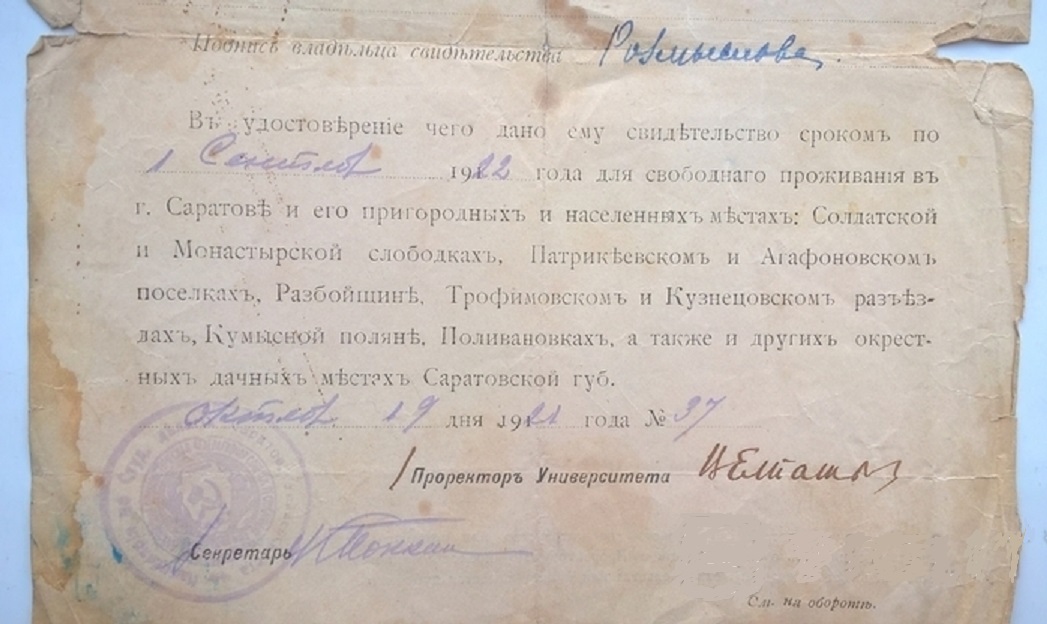 Подпись владѣльца свидѣтельства
Въ удостовѣреніе чего дано ему свидѣтельство срокомъ по
1 Сентября 1922 года для свободнаго проживанія въ
г. Саратовѣ и его пригородныхъ и населенныхъ мѣстахъ: Солдатской
и Монастырской слободкахъ, Патрикѣевскомъ и Агафоновскомъ
поселкахъ, Разбойщинѣ, Трофимовскомъ и Кузнецовскомъ разъѣз-
дахъ, Кумысной полянѣ, Поливановкахъ, а также и другихъ окрест-
ныхъ дачныхъ мѣстахъ Саратовской губ.
октября 19 дня 1921 года № 37
Проректоръ Университета
Секретарь
См. на оборотѣ.